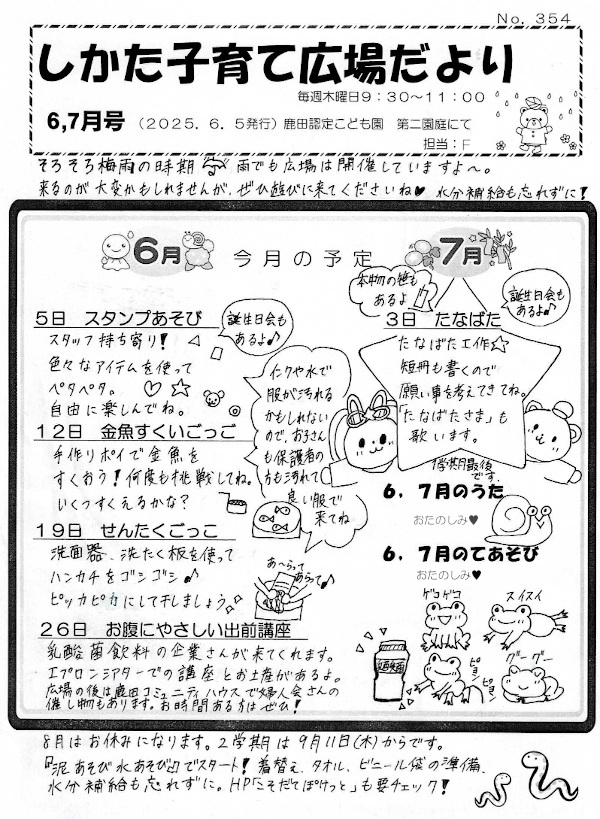 No. 354
しかた子育て広場だより
毎週木曜日9：30～11：00
6,7月号 （2025．6．5発行）鹿田認定こども園 第二園庭にて
担当：F
そろそろ梅雨の時期 雨でも広場は開催していますよ～。
来るのが大変かもしれませんが、ぜひ遊びに来てくださいね♥ 水分補給も忘れずに！
6月 今月の予定 7月
5日 スタンプあそび
誕生日会もあるよ♪
スタッフ持ち寄り！
色々なアイテムを使って
ペタペタ。
自由に楽しんでね。
インクや水で
服が汚れる
かもしれない
ので、お子さん
も保護者の
方も汚れて
良い服で
来てね
12日 金魚すくいごっこ
手作りポイで金魚を
すくおう！何度も挑戦してね。
いくつすくえるかな？
19日 せんたくごっこ
洗面器、洗たく板を使って
ハンカチをゴシゴシ♪
ピッカピカにして干しましょう
あ～らって
あらって♪
26日 お腹にやさしい出前講座
乳酸菌飲料の企業さんが来てくれます。
エプロンシアターでの講座とお土産があるよ。
広場の後は鹿田コミュニティハウスで婦人会さんの
催し物もあります。お時間ある方はぜひ！
本物の笹も
あるよ
誕生日会も
あるよ♪
3日 たなばた
たなばた工作☆
短冊も書くので
願い事を考えてきてね。
「たなばたさま」も
歌います。
1学期最後
です。
6．7月のうた
おたのしみ♥
6．7月のてあそび
おたのしみ♥
ゲコゲコ
スイスイ
ピョン
ピョン
グーグー
8月はお休みになります。2学期は9月11日(木)からです。
『泥あそび水あそび』でスタート！着替え、タオル、ビニール袋の準備、
水分補給も忘れずに。HP「こそだてぽけっと」も要チェック！